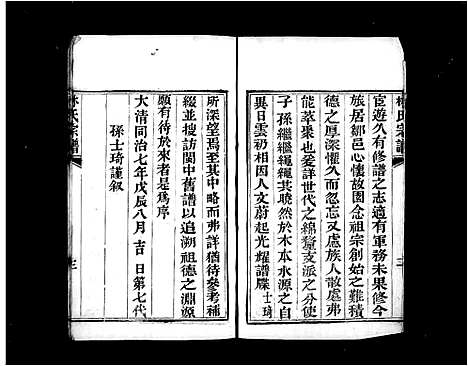 林氏宗譜
宦遊久有修譜之志適有軍務未果修今
旅居鄒邑心懷故園念祖宗創始之難積
德之厚深懼久而忽忘又慮族人散處弗
能萃聚也爰詳世代之綿騖支派之分使
子孫繼繼繩繩共曉然於木本水源之自
異日雲礽相因人文蔚起光耀譜牒士琦
所深望焉至其中略而弗詳猶待參考補
綴並搜訪閩中舊譜以追溯祖德之淵源
願有待於來者是爲序
大清同治七年戊辰八月吉日第七代
孫士琦謹叙
林氏宗譜
三